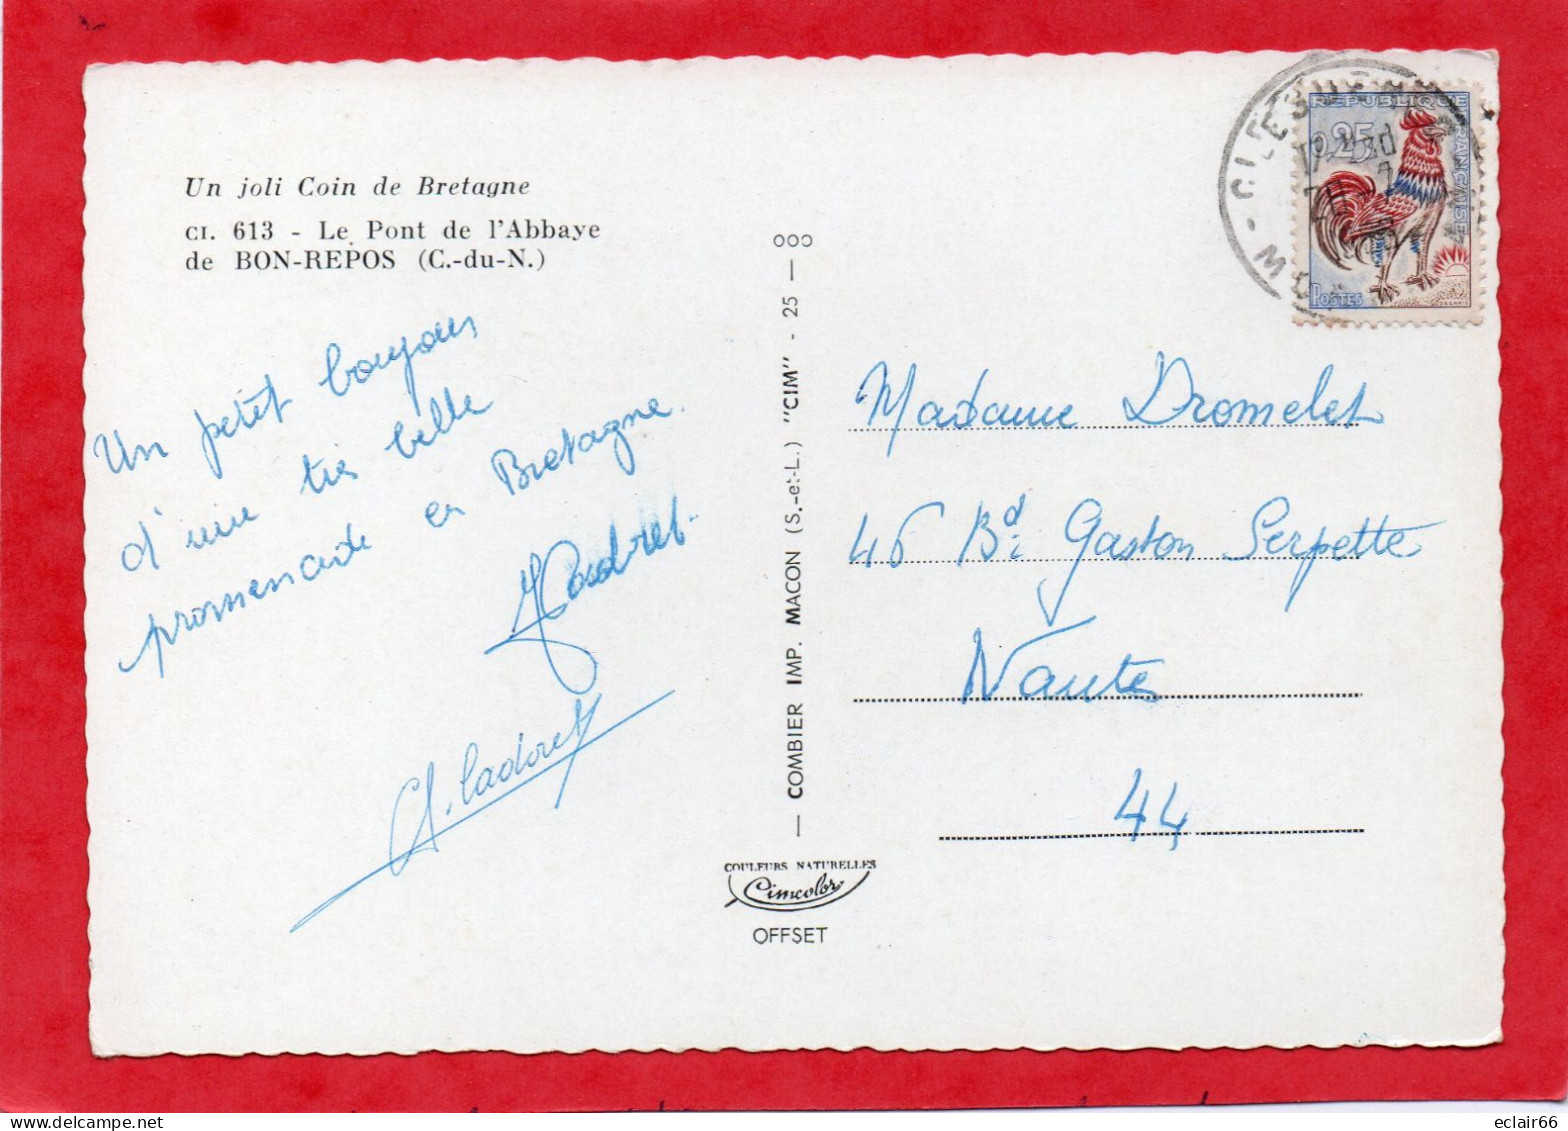 Un joli Coin de Bretagne
CI. 613 - Le Pont de l'Abbaye
de BON-REPOS (C.-du-N.)
Un petit bonjour
d'une très belle
promenade en Bretagne.
Cadoret
Ch. Cadoret
— COMBIER IMP. MACON (S.-et-L.) "CIM" - 25 — 000
COULEURS NATURELLES
Cimcolor
OFFSET
REPUBLIQUE FRANÇAISE
0,25
POSTES
Madame Dromelet
46 Bd Gaston Serpette
Nantes
44
eclair66